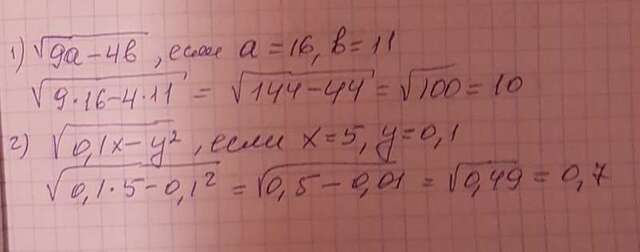 1) √(9a-4b), если a=16, b=11
√(9·16-4·11) = √(144-44) = √100 = 10
2) √(0,1x-y²), если x=5, y=0,1
√(0,1·5-0,1²) = √(0,5-0,01) = √0,49 = 0,7